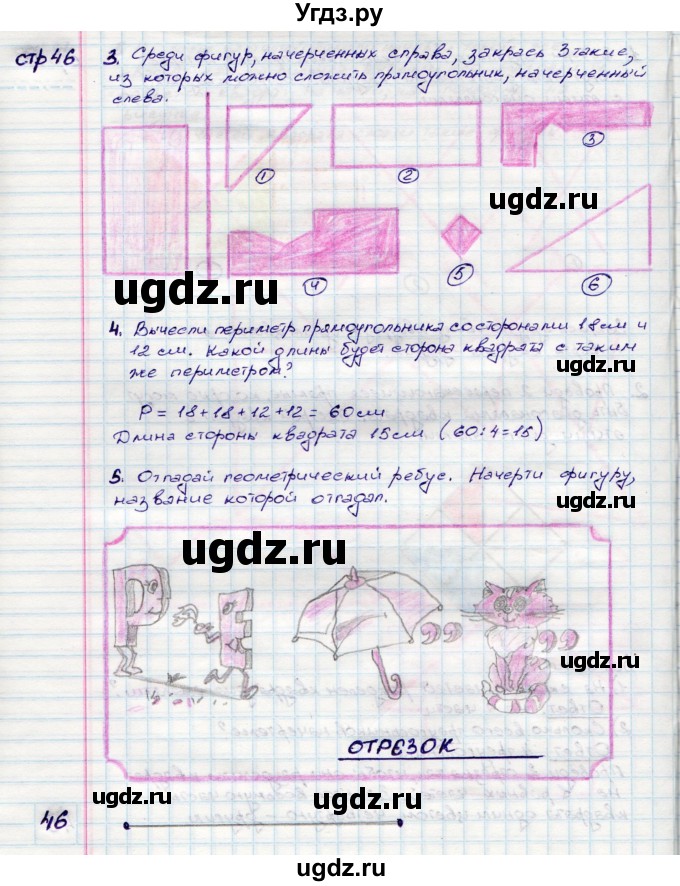 Угдз.ру
стр 46
3. Среди фигур, начерченных справа, закрась 3 такие,
из которых можно сложить прямоугольник, начерченный
слева.
1
2
3
ugdz.ru
4
5
6
ugdz.ru
ugdz.ru
4. Вычесли периметр прямоугольника со сторонами 18 см и
12 см. Какой длины будет сторона квадрата с таким
же периметром?
P = 18 + 18 + 12 + 12 = 60 см
Длина стороны квадрата 15 см (60 : 4 = 15)
5. Отгадай геометрический ребус. Начерти фигуру,
название которой отгадал.
ugdz.ru
Р Е ,, ,,
ugdz.ru
ОТРЕЗОК
ugdz.ru
ugdz.ru
46
ugdz.ru